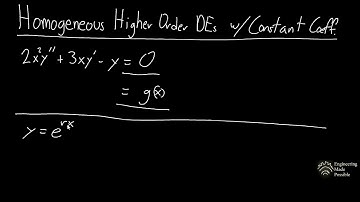 Homogeneous Higher Order DEs w/ Constant Coeff.
2x²y'' + 3xy' - y = 0
= g(x)
y = e^{rx}
Engineering
Made
Possible